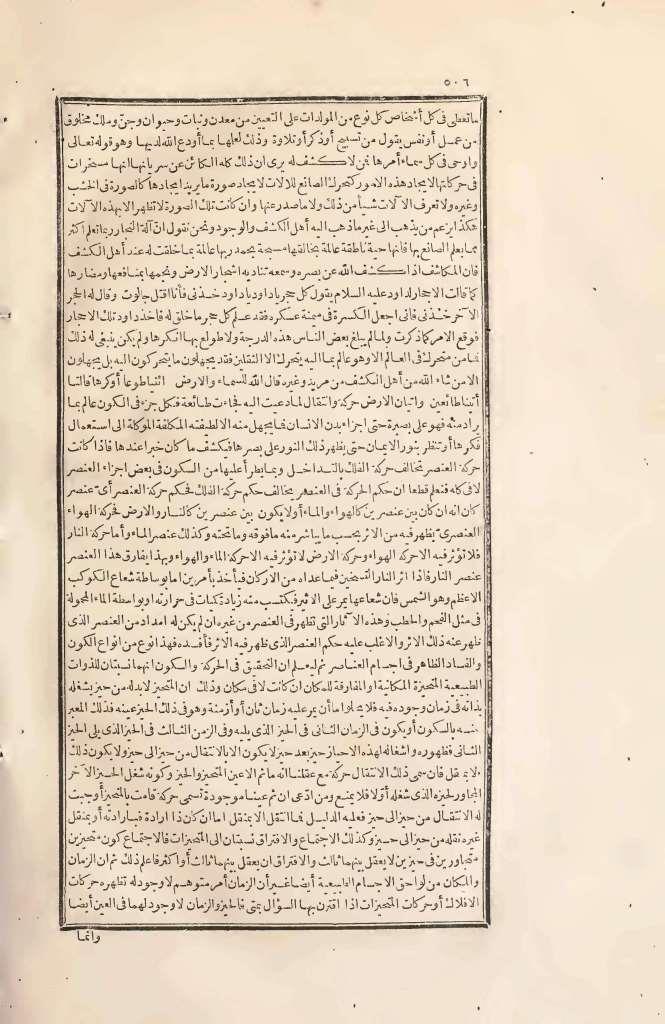 ٥٠٦
ما تعطى فى كل أشخاص كل نوع من المولدات على التعيين من معدن ونبات وحيوان وجن وملك مخلوق
من عمل أو نفس يقول من تسبيح أو ذكر أو تلاوة وذلك لعلها بما أودع الله لديها وهو قوله تعالى
واوحى فى كل سماء أمرها فمن لا كشف له يرى ان ذلك كله الكائن عن سريانها انها مسخرات
فى حركاتها لايجاد هذه الامور كتحرك الصانع للآلات لايجاد صورة ما يريد ايجادها كالصورة فى الخشب
وغيره ولا تعرف الآلات شيأ من ذلك ولا ما صدر عنها وان كانت تلك الصورة لا تظهر الا بهذه الآلات
هكذا يزعم من يذهب الى غير ما ذهب اليه أهل الكشف والوجود ونحن نقول ان آلة النجار ربما تعلم أكثر
مما يعلم الصانع بها فانها حية ناطقة عالمة بخالقها مسبحة بحمد ربها عالمة بما خلقت له عند أهل الكشف
فان المكاشف اذا كشف الله عن بصره وسمعه تناديه أشجار الارض ونجمها بمنافعها ومضارها
كما قالت الاحجار لداود عليه السلام يقول كل حجر يا داود يا داود خذنى فأنا أقتل جالوت وقال له الحجر
الآخر خذنى فانى اجعل الكسرة فى ميمنة عسكره فقد علم كل حجر ما خلق له فاخذ داود تلك الاحجار
فوقع الامر كما ذكرت ولما لم يبلغ بعض الناس هذه الدرجة ولا طولع بها أنكرها ولم يكن ينبغى له ذلك
فما من متحرك فى العالم الا وهو عالم بما اليه يتحرك الا الثقلين فقد يجهلون ما يتحركون اليه بل يجهلون
الامن شاء الله من أهل الكشف من مريد وغيره قال الله للسماء والارض ائتيا طوعا أو كرها قالتا
أتينا طائعين واتيان الارض حركة وانتقال لما دعيت اليه فجاءت طائعة فكل جزء فى الكون عالم بما
يراد منه فهو على بصيرة حتى اجزاء بدن الانسان فما يجهل منه الا لطيفته المكلفة الموكلة الى استعمال
فكرها أو تنظر بنور الايمان حتى يظهر ذلك النور على بصرها فيكشف ما كان خبرا عندها فاذا كانت
حركة العنصر تخالف حركة الفلك بالتداخل وبما يطرأ عليها من السكون فى بعض اجزاء العنصر
لا فى كله فنعلم قطعا ان حكم الحركة فى العنصر يخالف حكم حركة الفلك فحكم حركة العنصر أى عنصر
كان انه ان كان بين عنصرين كالهواء والماء أولا يكون بين عنصرين كالنار والارض فحركة الهواء
العنصرى يظهر فيه من الاثر بحسب ما يباشر منه ما فوقه وما تحته وكذلك عنصر الماء وأما حركة النار
فلا تؤثر فيه الا حركة الهواء وحركة الارض لا تؤثر فيه الا حركة الماء والهواء وبهذا يفارق هذا العنصر
عنصر النار فاذا اثر النار التسخين فيما عداه من الاركان فبأحد أمرين اما بوساطة شعاع الكوكب
الاعظم وهو الشمس فان شعاعها يمر على الاثير فيكتسب منه زيادة كيات فى حرارته أو بواسطة الماء المحمولة
فى مثل الفحم والحطب وهذه الآثار التى تظهر فى العنصر من غيره ان لم يكن له امداد من العنصر الذى
ظهر عنه ذلك الاثر والا غلب عليه حكم العنصر الذى ظهر فيه الاثر فأفسده فهذا نوع من انواع الكون
والفساد الظاهر فى اجسام العناصر ثم ليعلم ان التحقيق فى الحركة والسكون انهما نسبتان للذوات
الطبيعية المتحيزة المكانية أو المفارقة للمكان ان كانت لا فى مكان وذلك ان المتحيز لابد له من حيز يشغله
بذاته فى زمان وجوده فيه فلا يخلو اما أن يمر عليه زمان ثان أو أزمنة وهو فى ذلك الحيز عينه فذلك المعبر
عنه بالسكون أو يكون فى الزمان الثانى فى الحيز الذى يليه وفى الزمن الثالث فى الحيز الذى يلى الحيز
الثانى فظهوره واشغاله لهذه الاحياز حيز بعد حيز لا يكون الا بالانتقال من حيز الى حيز ولا يكون ذلك
الا بمنقل فان سمى ذلك الانتقال حركة مع عقلنا انه ما ثم الا عين المتحيز والحيز وكونه شغل الحيز الآخر
المجاور لحيزه الذى شغله أولا فلا يمنع ومن ادعى ان ثم عينا موجودة تسمى حركة قامت بالمتحيز أوجبت
له الانتقال من حيز الى حيز فعليه الدليل فما انتقل الا بمنقل اما ان كان ذا ارادة فبارادته أو بمنقل
غيره نقله من حيز الى حيز وكذلك الاجتماع والافتراق نسبتان الى المتحيزات فالاجتماع كون متحيزين
متجاورين فى حيزين لا يعقل بينهما ثالث والافتراق ان يعقل بينهما ثالث أو أكثر فاعلم ذلك ثم ان الزمان
والمكان من لواحق الاجسام الطبيعية أيضا غير أن الزمان أمر متوهم لا وجود له تظهره حركات
الافلاك أو حركات المتحيزات اذا اقترن بها السؤال بمتى فالحيز والزمان لا وجود لهما فى العين أيضا
وانما